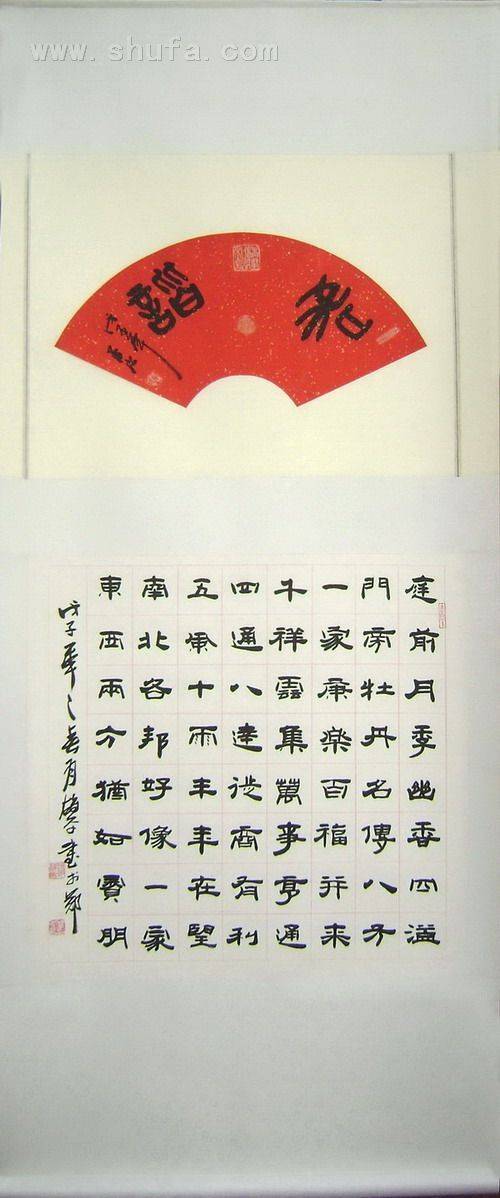 www.shufa.com
戊子年
庭前月季幽香四溢
門旁牡丹名傳八方
一家康樂百福并来
千祥雲集萬事亨通
四通八達從商有利
五風十雨丰年在望
南北各邦好像一家
東西兩方猶如賓朋
戊子年之春月書於鄭